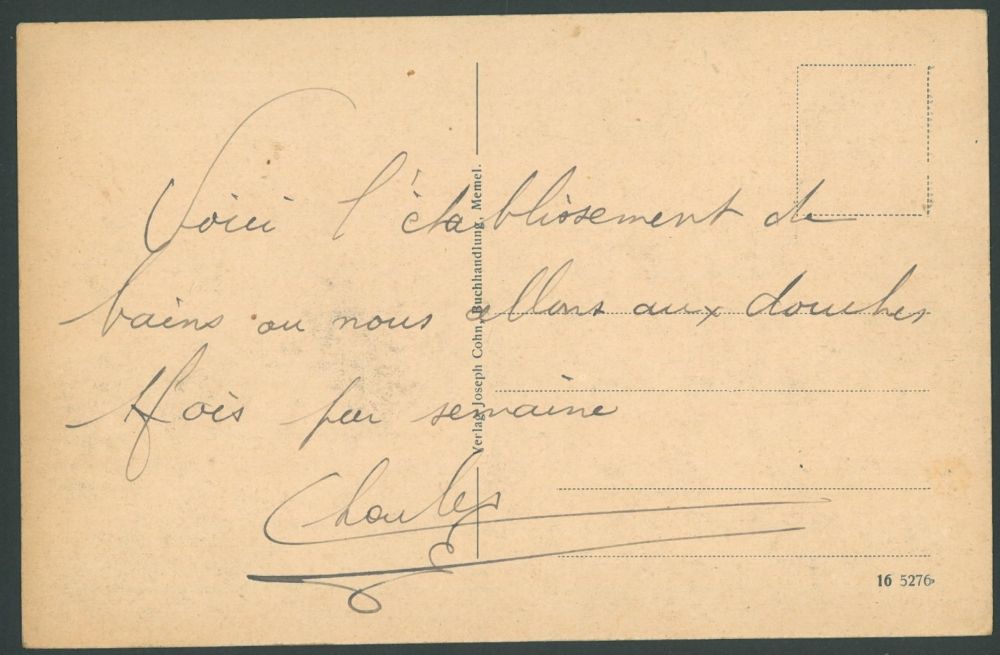 Voici l'établissement de
bains ou nous allons aux douches
fois par semaine
Charles
Verlag Joseph Cohn, Buchhandlung, Memel.
16 5276